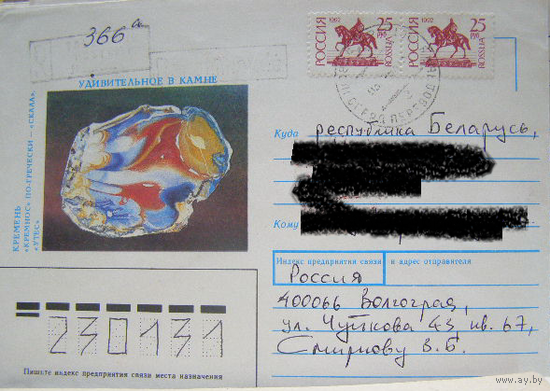 366 а
РОССИЯ 1992 25 РУБ ROSSIJA
РОССИЯ 1992 25 РУБ ROSSIJA
УДИВИТЕЛЬНОЕ В КАМНЕ
КРЕМЕНЬ
«КРЕМНОС» ПО-ГРЕЧЕСКИ — «СКАЛА»,
«УТЕС»
Куда республика Беларусь,
Кому
Индекс предприятия связи и адрес отправителя
Россия
400066 Волгоград,
ул. Чуйкова 43, кв. 67,
Смирнову В.Б.
230131
Пишите индекс предприятия связи места назначения
www.ay.by